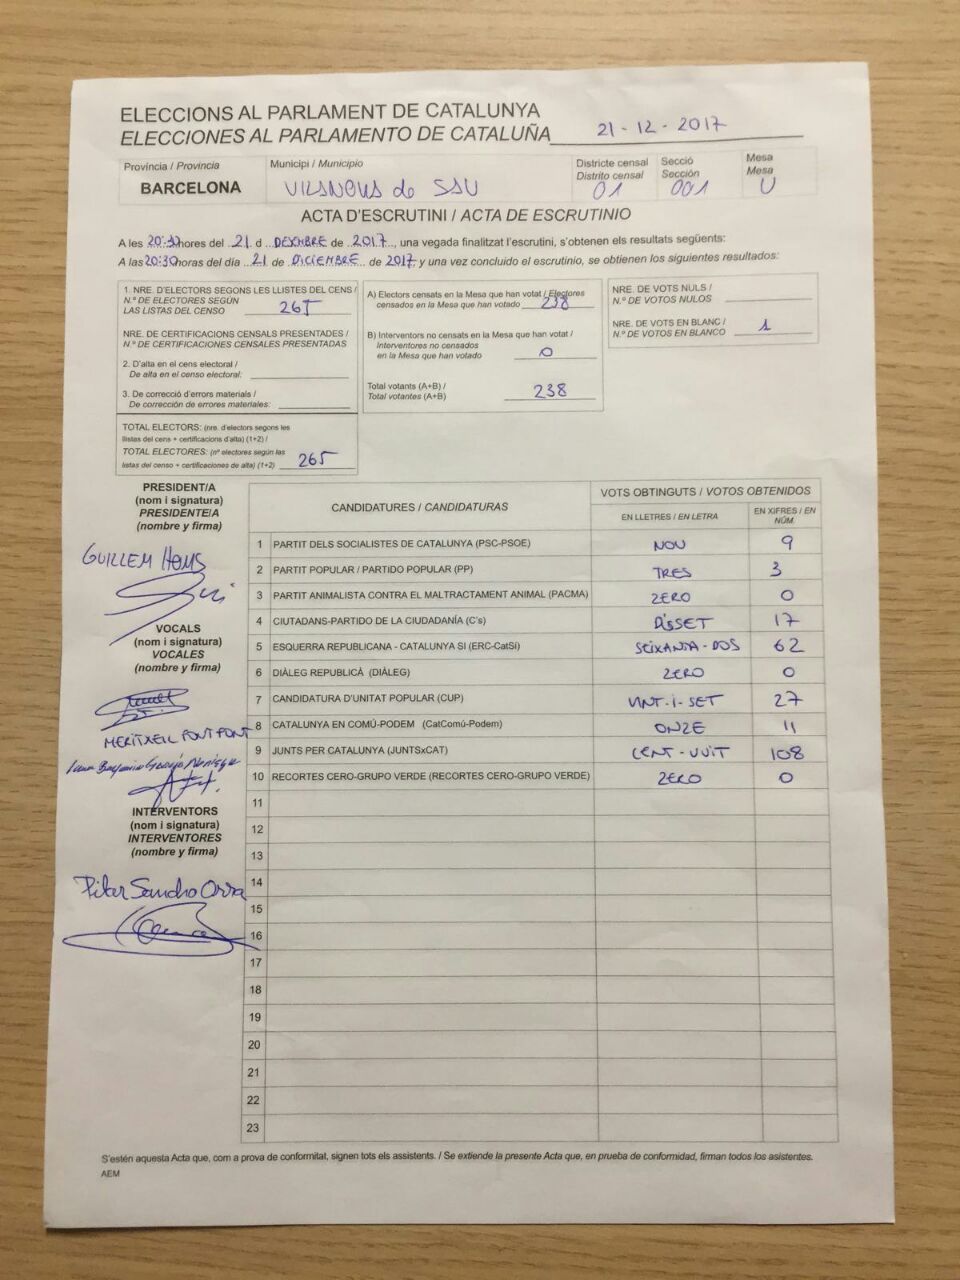 ELECCIONS AL PARLAMENT DE CATALUNYA
ELECCIONES AL PARLAMENTO DE CATALUÑA 21-12-2017
Província / Provincia
BARCELONA
Municipi / Municipio
VILANOVA de SAU
Districte censal
Distrito censal
01
Secció
Sección
001
Mesa
Mesa
U
ACTA D'ESCRUTINI / ACTA DE ESCRUTINIO
A les 20:30 hores del 21 d DESEMBRE de 2017, una vegada finalitzat l'escrutini, s'obtenen els resultats següents:
A las 20:30 horas del día 21 de DICIEMBRE de 2017 y una vez concluido el escrutinio, se obtienen los siguientes resultados:
1. NRE. D'ELECTORS SEGONS LES LLISTES DEL CENS /
N.º DE ELECTORES SEGÚN
LAS LISTAS DEL CENSO 265
NRE. DE CERTIFICACIONS CENSALS PRESENTADES /
N.º DE CERTIFICACIONES CENSALES PRESENTADAS
2. D'alta en el cens electoral /
De alta en el censo electoral:
3. De correcció d'errors materials /
De corrección de errores materiales:
TOTAL ELECTORS: (nre. d'electors segons les
llistes del cens + certificacions d'alta) (1+2) /
TOTAL ELECTORES: (nº electores según las
listas del censo + certificaciones de alta) (1+2) 265
A) Electors censats en la Mesa que han votat / Electores
censados en la Mesa que han votado 238
B) Interventors no censats en la Mesa que han votat /
Interventores no censados
en la Mesa que han votado 0
Total votants (A+B) /
Total votantes (A+B) 238
NRE. DE VOTS NULS /
N.º DE VOTOS NULOS
NRE. DE VOTS EN BLANC /
N.º DE VOTOS EN BLANCO 1
PRESIDENT/A
(nom i signatura)
PRESIDENTE/A
(nombre y firma)
GUILLEM HOMS
VOCALS
(nom i signatura)
VOCALES
(nombre y firma)
MERITXELL FONT FONT
INTERVENTORS
(nom i signatura)
INTERVENTORES
(nombre y firma)
Pilar Sancho
CANDIDATURES / CANDIDATURAS
VOTS OBTINGUTS / VOTOS OBTENIDOS
EN LLETRES / EN LETRA
EN XIFRES / EN NÚM.
1 PARTIT DELS SOCIALISTES DE CATALUNYA (PSC-PSOE) NOU 9
2 PARTIT POPULAR / PARTIDO POPULAR (PP) TRES 3
3 PARTIT ANIMALISTA CONTRA EL MALTRACTAMENT ANIMAL (PACMA) ZERO 0
4 CIUTADANS-PARTIDO DE LA CIUDADANÍA (C's) DISSET 17
5 ESQUERRA REPUBLICANA - CATALUNYA SÍ (ERC-CatSí) SEIXANTA-DOS 62
6 DIÀLEG REPUBLICÀ (DIÀLEG) ZERO 0
7 CANDIDATURA D'UNITAT POPULAR (CUP) VINT-I-SET 27
8 CATALUNYA EN COMÚ-PODEM (CatComú-Podem) ONZE 11
9 JUNTS PER CATALUNYA (JUNTSxCAT) CENT-VUIT 108
10 RECORTES CERO-GRUPO VERDE (RECORTES CERO-GRUPO VERDE) ZERO 0
11
12
13
14
15
16
17
18
19
20
21
22
23
S'estén aquesta Acta que, com a prova de conformitat, signen tots els assistents. / Se extiende la presente Acta que, en prueba de conformidad, firman todos los asistentes.
AEM